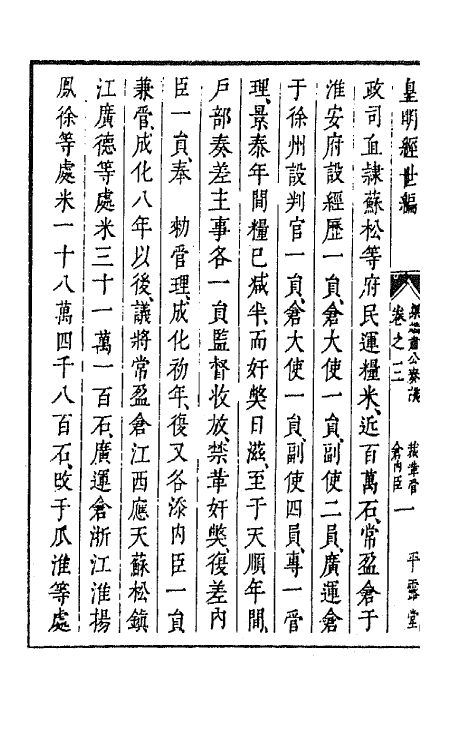 皇明經世編
卷之三
一
平露堂
政司直隷蘇松等府民運糧米、近百萬石、常盈倉于
淮安府設經歷一員、倉大使一員、副使二員、廣運倉
于徐州設判官一員、倉大使一員、副使四員、專一管
理、景泰年間糧已減半、而奸獘日滋、至于天順年間、
戶部奏差主事各一員監督收放、禁革奸獘、復差内
臣一員、奉 勑管理、成化初年、復又各添内臣一員
兼管、成化八年以後、議將常盈倉江西應天蘇松鎮
江廣德等處米三十一萬一百石、廣運倉浙江淮揚
鳳徐等處米一十八萬四千八百石、改于瓜淮等處